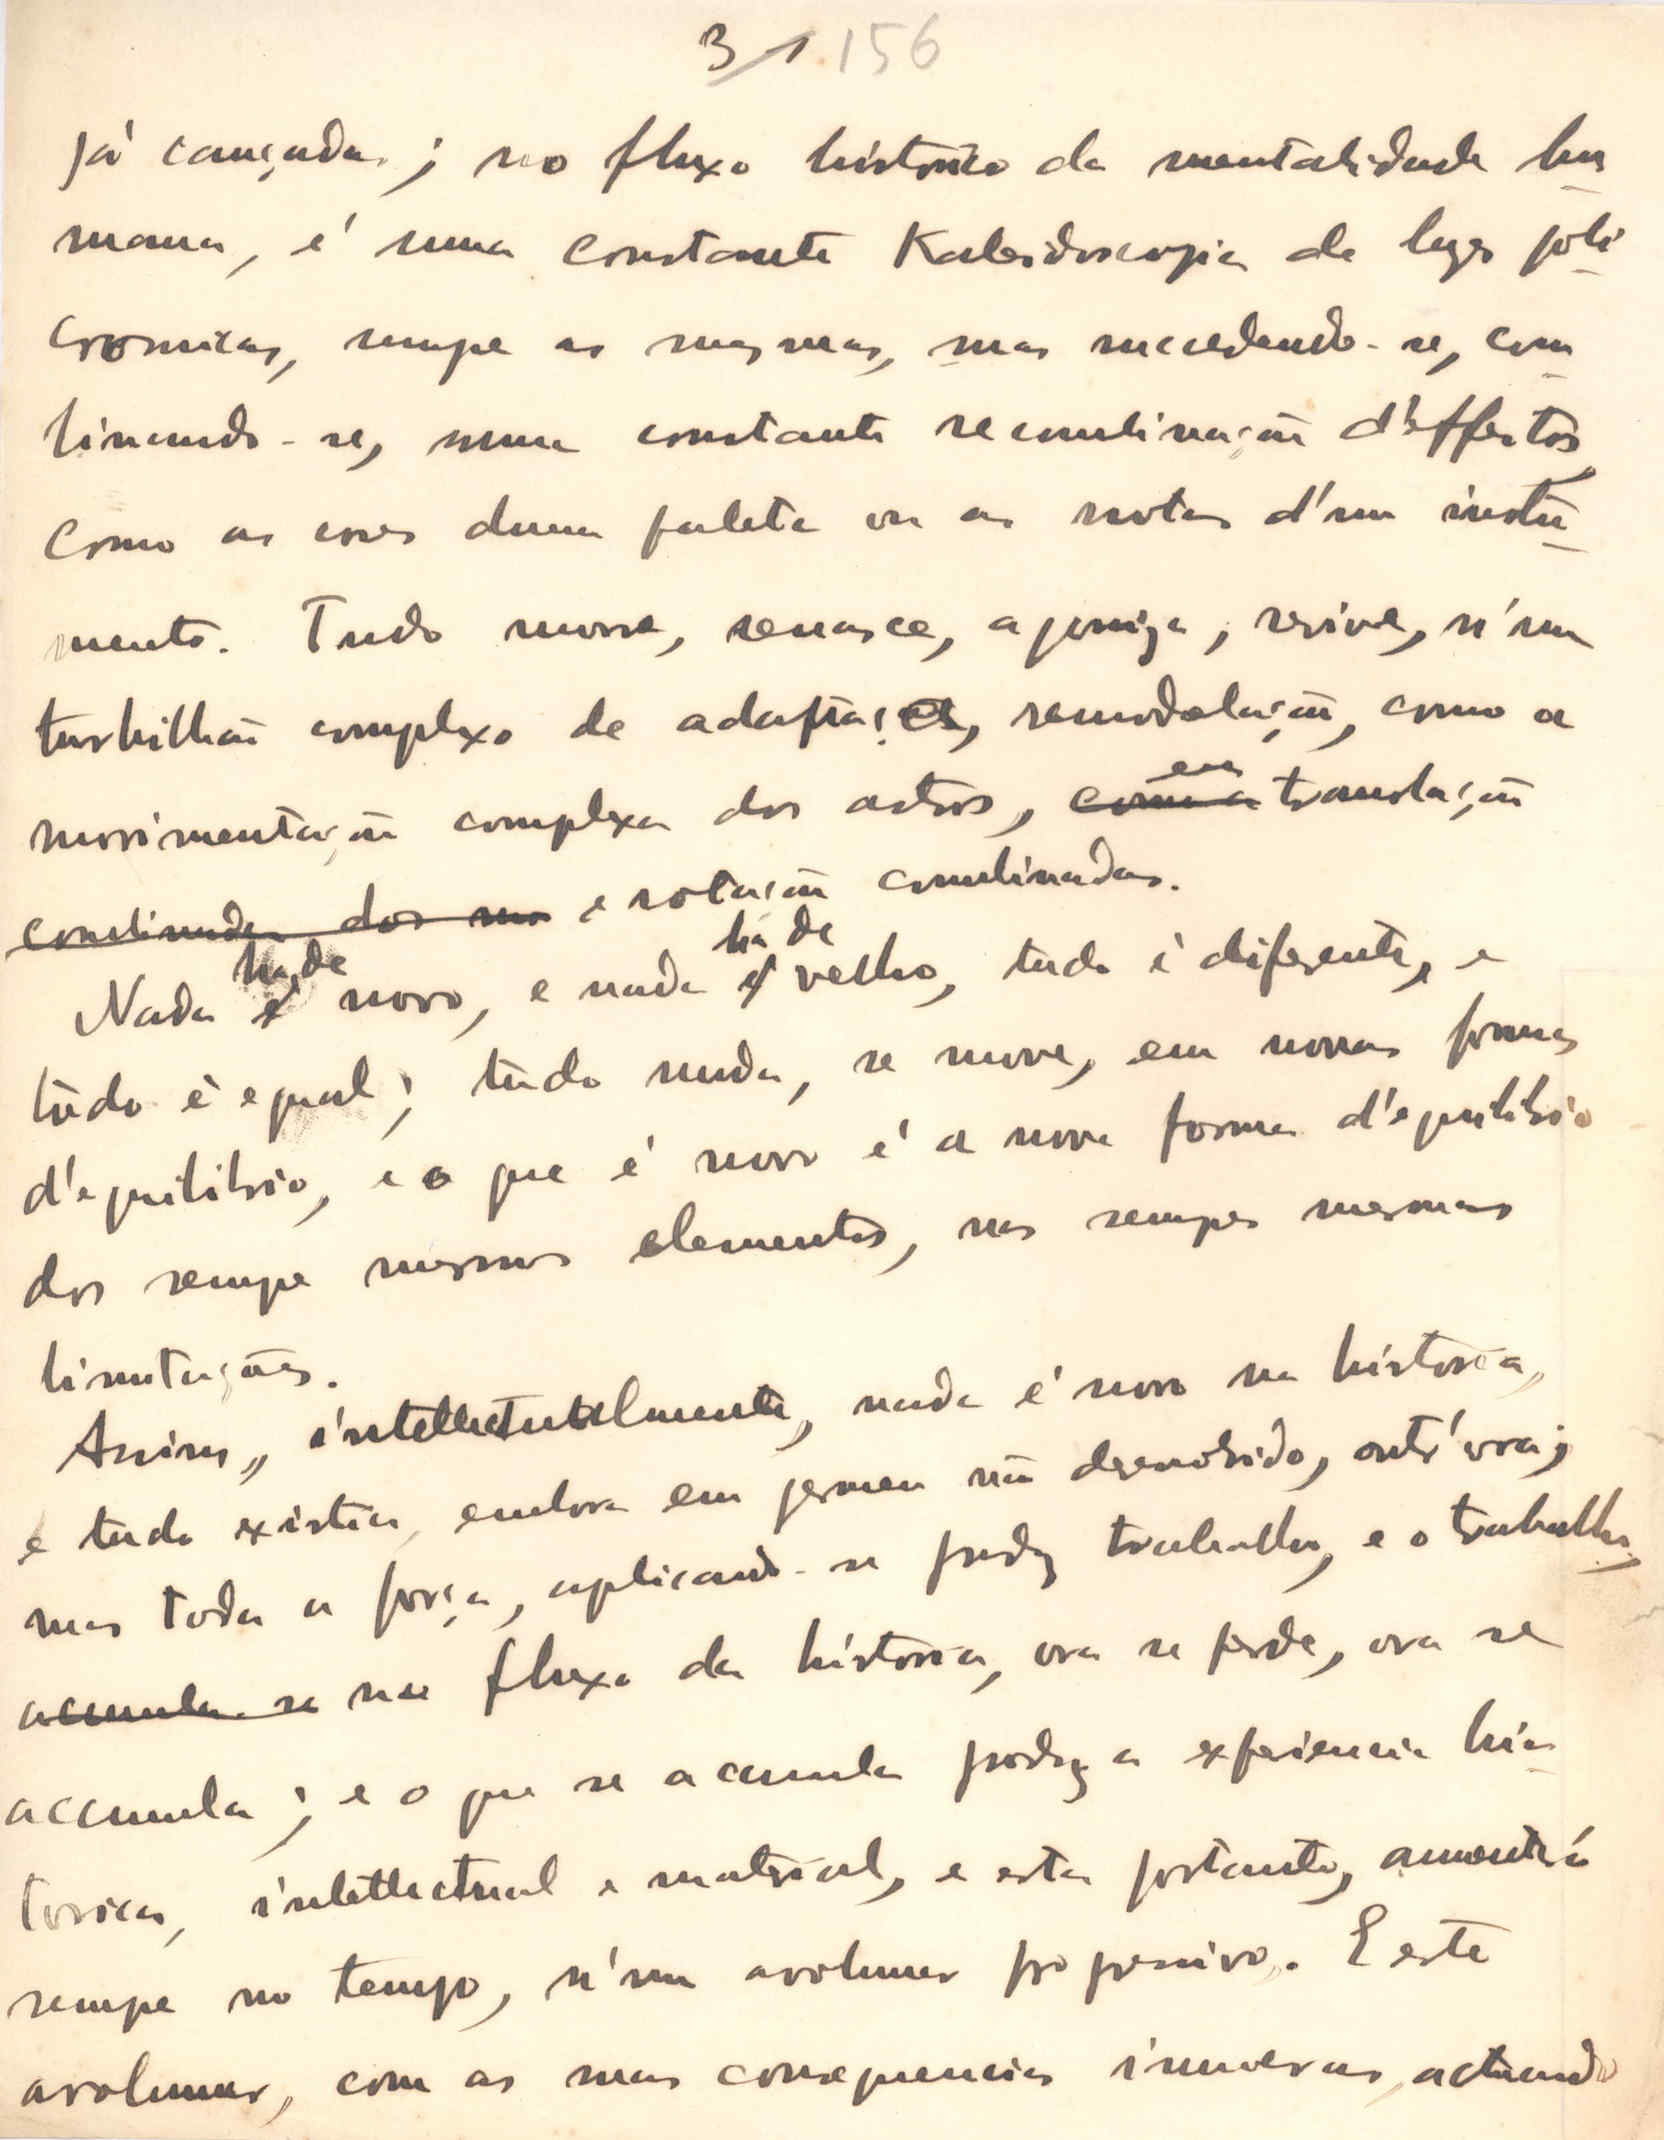 3/1 156
já cançadas; no fluxo historico da mentalidade hu
mana, é uma constante Kaleidoscopia de luzes poli
cromicas, sempre as mesmas, mas succedendo-se, com
binando-se, numa constante recombinação d'effeitos
como as cores duma paleta ou as notas d'um instru
mento. Tudo morre, renasce, agoniza, revive, n'um
turbilhão complexo de adaptação, remodelação, como a
movimentação complexa dos astros, em
como a translação
combinada dos e rotação combinadas.
ha de há de
Nada é novo, e nada é velho, tudo é diferente, e
tudo é egual; tudo muda, se move, em novas formas
d'equilibrio, e o que é novo é a nova forma d'equilibrio
dos sempre mesmos elementos, nas sempre mesmas
limitações.
Assim, intellectualmente, nada é novo na historia,
e tudo existia, embora em germen não desenvolvido, outr'ora;
mas toda a força, aplicando-se produz trabalho, e o trabalho,
acumula-se no fluxo da historia, ora se perde, ora se
accumula; e o que se acumula produz a experiencia his
torica, intellectual e material, e esta portanto, aumentará
sempre no tempo, n'um avolumar progressivo. E este
avolumar, com as suas consequencias inumeras, actuando